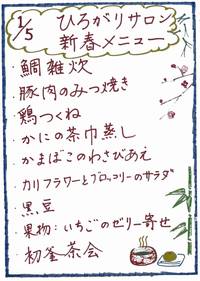 1/5 ひろがりサロン
新春メニュー
・鯛雑炊
・豚肉のみつ焼き
・鶏つくね
・かにの茶巾蒸し
・かまぼこのわさびあえ
・カリフラワーとブロッコリーのサラダ
・黒豆
・果物:いちごのゼリー寄せ
・初釜茶会